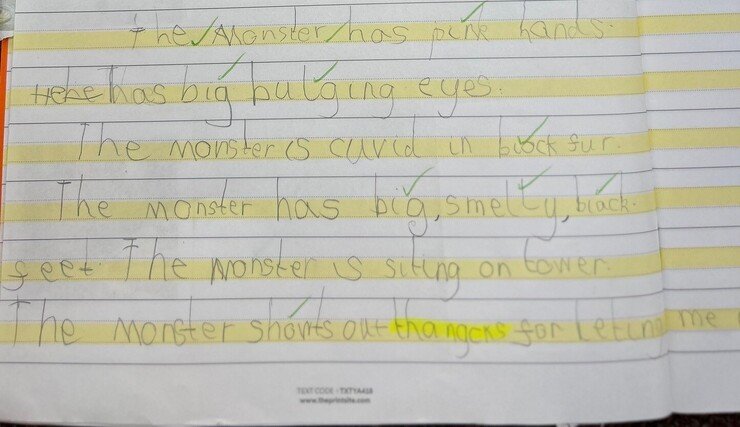 The Monster has pink hands.
Hehe has big bulging eyes.
The monster is cuvid in black fur.
The monster has big, smelly, black.
feet. The monster is siting on tower.
The monster shouts out thangcks for leting me
TEXT CODE : TXTYA4S8
www.theprintsite.com